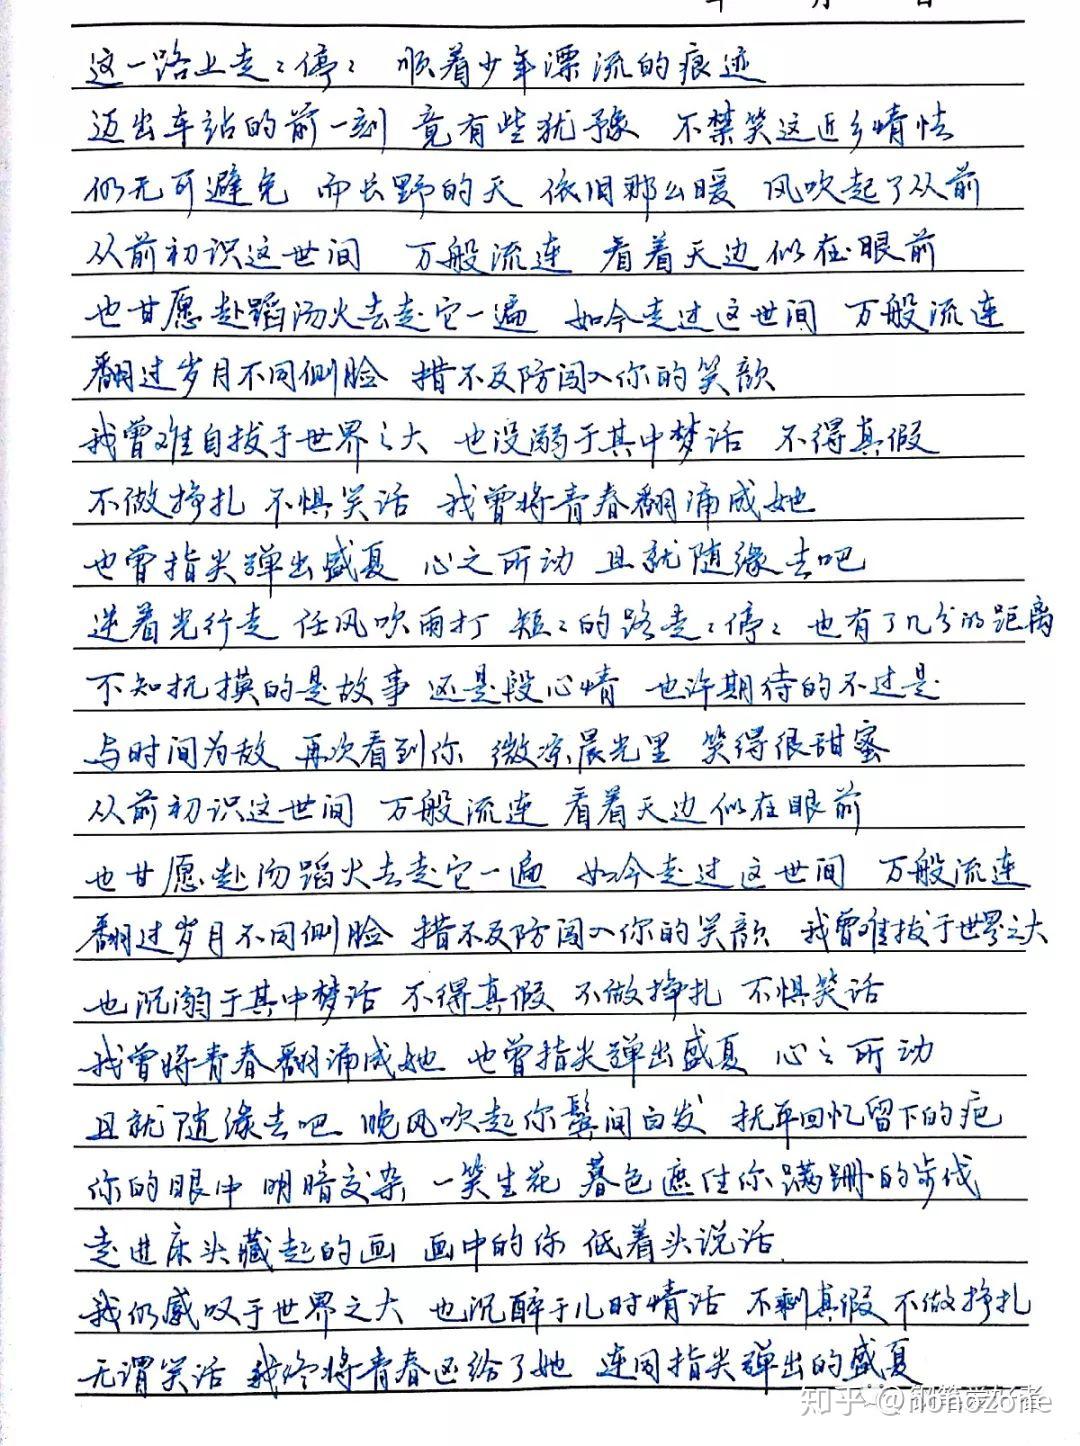 年 月 日
这一路上走〻停〻 顺着少年漂流的痕迹
迈出车站的前一刻 竟有些犹豫 不禁笑这近乡情怯
仍无可避免 而长野的天 依旧那么暖 风吹起了从前
从前初识这世间 万般流连 看着天边似在眼前
也甘愿赴蹈汤火去走它一遍 如今走过这世间 万般流连
翻过岁月不同侧脸 措不及防闯入你的笑颜
我曾难自拔于世界之大 也没溺于其中梦话 不得真假
不做挣扎 不惧笑话 我曾将青春翻涌成她
也曾指尖弹出盛夏 心之所动 且就随缘去吧
逆着光行走 任风吹雨打 短〻的路走〻停〻 也有了几分的距离
不知抚摸的是故事 还是段心情 也许期待的不过是
与时间为敌 再次看到你 微凉晨光里 笑得很甜蜜
从前初识这世间 万般流连 看着天边似在眼前
也甘愿赴汤蹈火去走它一遍 如今走过这世间 万般流连
翻过岁月不同侧脸 措不及防闯入你的笑颜 我曾难拔于世界之大
也沉溺于其中梦话 不得真假 不做挣扎 不惧笑话
我曾将青春翻涌成她 也曾指尖弹出盛夏 心之所动
且就随缘去吧 晚风吹起你鬓间白发 抚平回忆留下的疤
你的眼中 明暗交杂 一笑生花 暮色遮住你蹒跚的步伐
走进床头藏起的画 画中的你 低着头说话
我仍感叹于世界之大 也沉醉于儿时情话 不剩真假 不做挣扎
无谓笑话 我终将青春还给了她 连同指尖弹出的盛夏
知乎 @nonozone